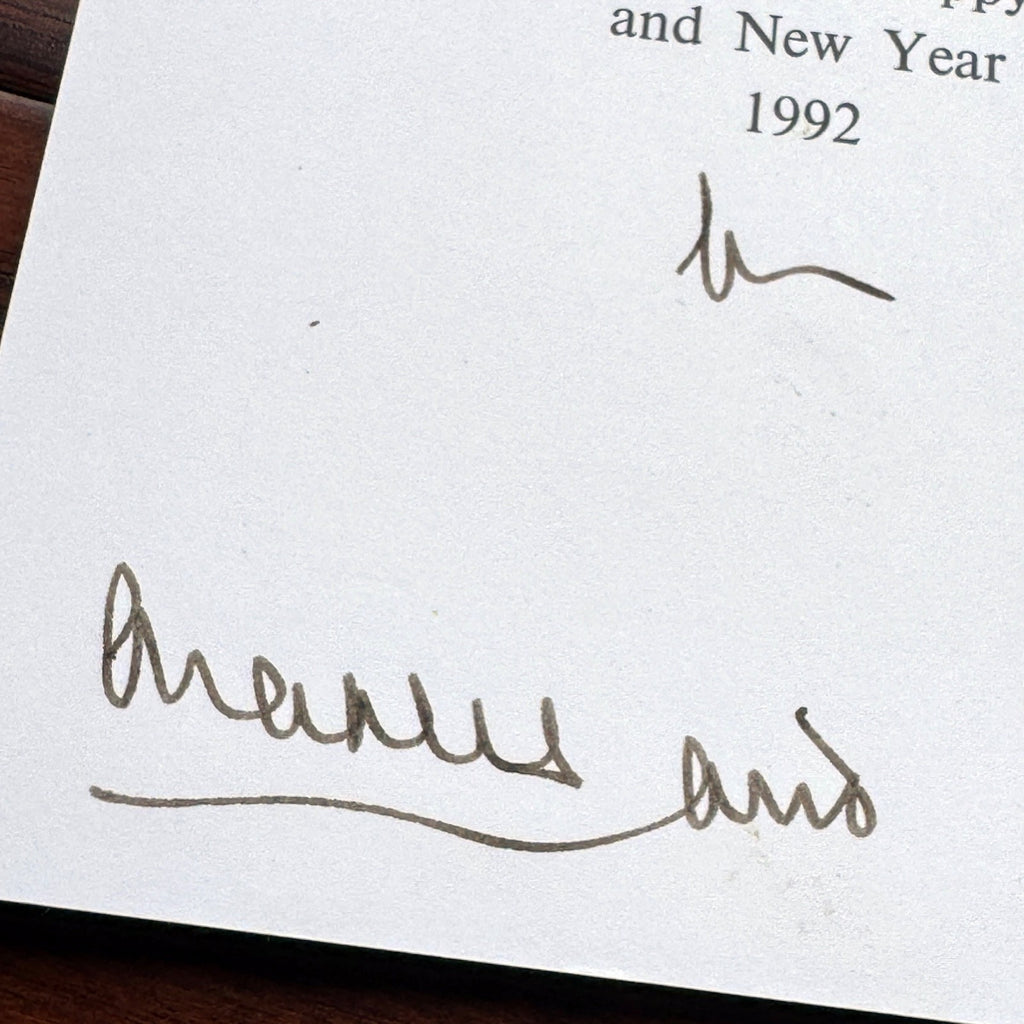 and New Year
1992
Charles and